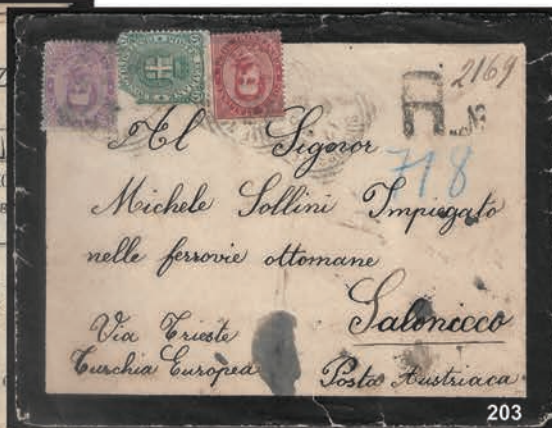 2169
R
No
718
Al Signor
Michele Sollini Impiegato
nelle ferrovie ottomane
Salonicco
Via Trieste
Turchia Europea
Posta Austriaca
203